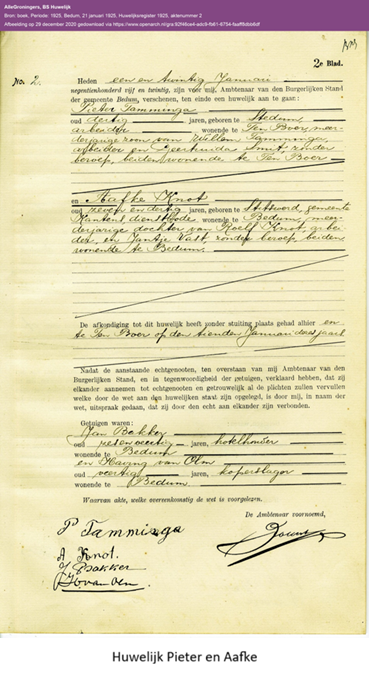 AlleGroningers, BS Huwelijk
Bron: boek, Periode: 1925, Bedum, 21 januari 1925, Huwelijksregister 1925, aktenummer 2
Afbeelding op 29 december 2020 gedownload via https://www.openarch.nl/
2e Blad.
No. 2.
Heden een en twintig Januari
negentienhonderd vijf en twintig, zijn voor mij, Ambtenaar van den Burgerlijken Stand
der gemeente Bedum, verschenen, ten einde een huwelijk aan te gaan:
Pieter Tamminga
oud dertig jaren, geboren te Stedum
arbeider wonende te Ten Boer, meer-
derjarige zoon van Willem Tamminga
arbeider en Geertruida Smit zonder
beroep, beiden wonende te Ten Boer
en Aafke Knot
oud zeven en dertig jaren, geboren te Stitswerd, gemeente
Kantens, dienstbode wonende te Bedum, meer-
derjarige dochter van Roelf Knot, arbei-
der, en Jantje Vast, zonder beroep, beiden
wonende te Bedum.
De afkondiging tot dit huwelijk heeft zonder stuiting plaats gehad alhier en
te Ten Boer op den tienden Januari dezes jaars
Nadat de aanstaande echtgenooten, ten overstaan van mij Ambtenaar van den
Burgerlijken Stand, en in tegenwoordigheid der getuigen, verklaard hebben, dat zij
elkander aannemen tot echtgenooten en getrouwelijk al de plichten zullen vervullen
welke door de wet aan den huwelijken staat zijn opgelegd, is door mij, in naam der
wet, uitspraak gedaan, dat zij door den echt aan elkander zijn verbonden.
Getuigen waren:
Jan Bakker
oud veertig jaren, hotelhouder
wonende te Bedum
en Haijng van Olm
oud veertig jaren, koperslager
wonende te Bedum.
Waarvan akte, welke overeenkomstig de wet is voorgelezen.
De Ambtenaar voornoemd,
P Tamminga
A Knot.
J Bakker
H van Olm
Huwelijk Pieter en Aafke